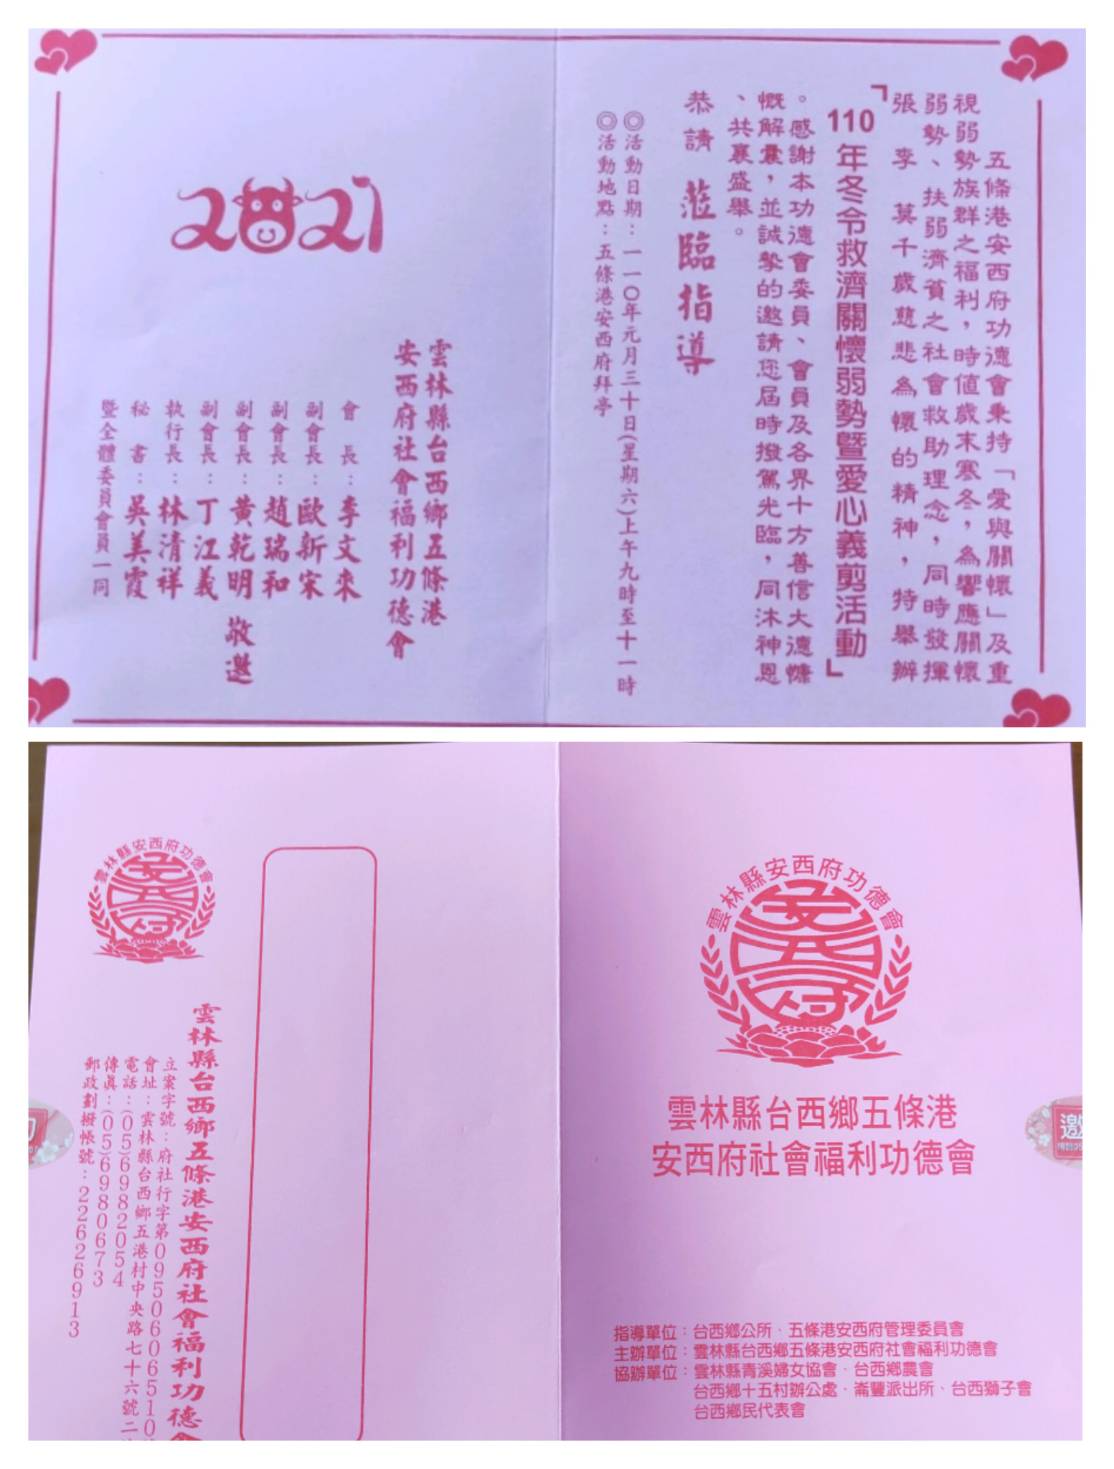 五條港安西府功德會秉持「愛與關懷」及重
視弱勢族群之福利，時值歲末寒冬，為響應關懷
弱勢、扶弱濟貧之社會救助理念，同時發揮
張 李 莫千歲慈悲為懷的精神，特舉辦
「110年冬令救濟關懷弱勢暨愛心義剪活動」
。感謝本功德會委員、會員及各界十方善信大德慷
慨解囊，並誠摯的邀請您屆時撥駕光臨，同沐神恩
、共襄盛舉。
恭請 蒞臨指導
◎活動日期：一一○年元月三十日(星期六)上午九時至十一時
◎活動地點：五條港安西府拜亭
2021
雲林縣台西鄉五條港
安西府社會福利功德會
會長：李文來
副會長：歐新宋
副會長：趙瑞和
副會長：黃乾明
副會長：丁江義
執行長：林清祥
秘書：吳美霞
暨全體委員會員一同
敬邀
雲林縣安西府功德會
安西府
雲林縣台西鄉五條港
安西府社會福利功德會
邀
指導單位：台西鄉公所．五條港安西府管理委員會
主辦單位：雲林縣台西鄉五條港安西府社會福利功德會
協辦單位：雲林縣青溪婦女協會．台西鄉農會
台西鄉十五村辦公處．崙豐派出所．台西獅子會
台西鄉民代表會
雲林縣安西府功德會
安西府
雲林縣台西鄉五條港安西府社會福利功德
立案字號：府社行字第0950606510
會址：雲林縣台西鄉五港村中央路七十六號二
電話：(05)6982054
傳真：(05)6980673
郵政劃撥帳號：22626913